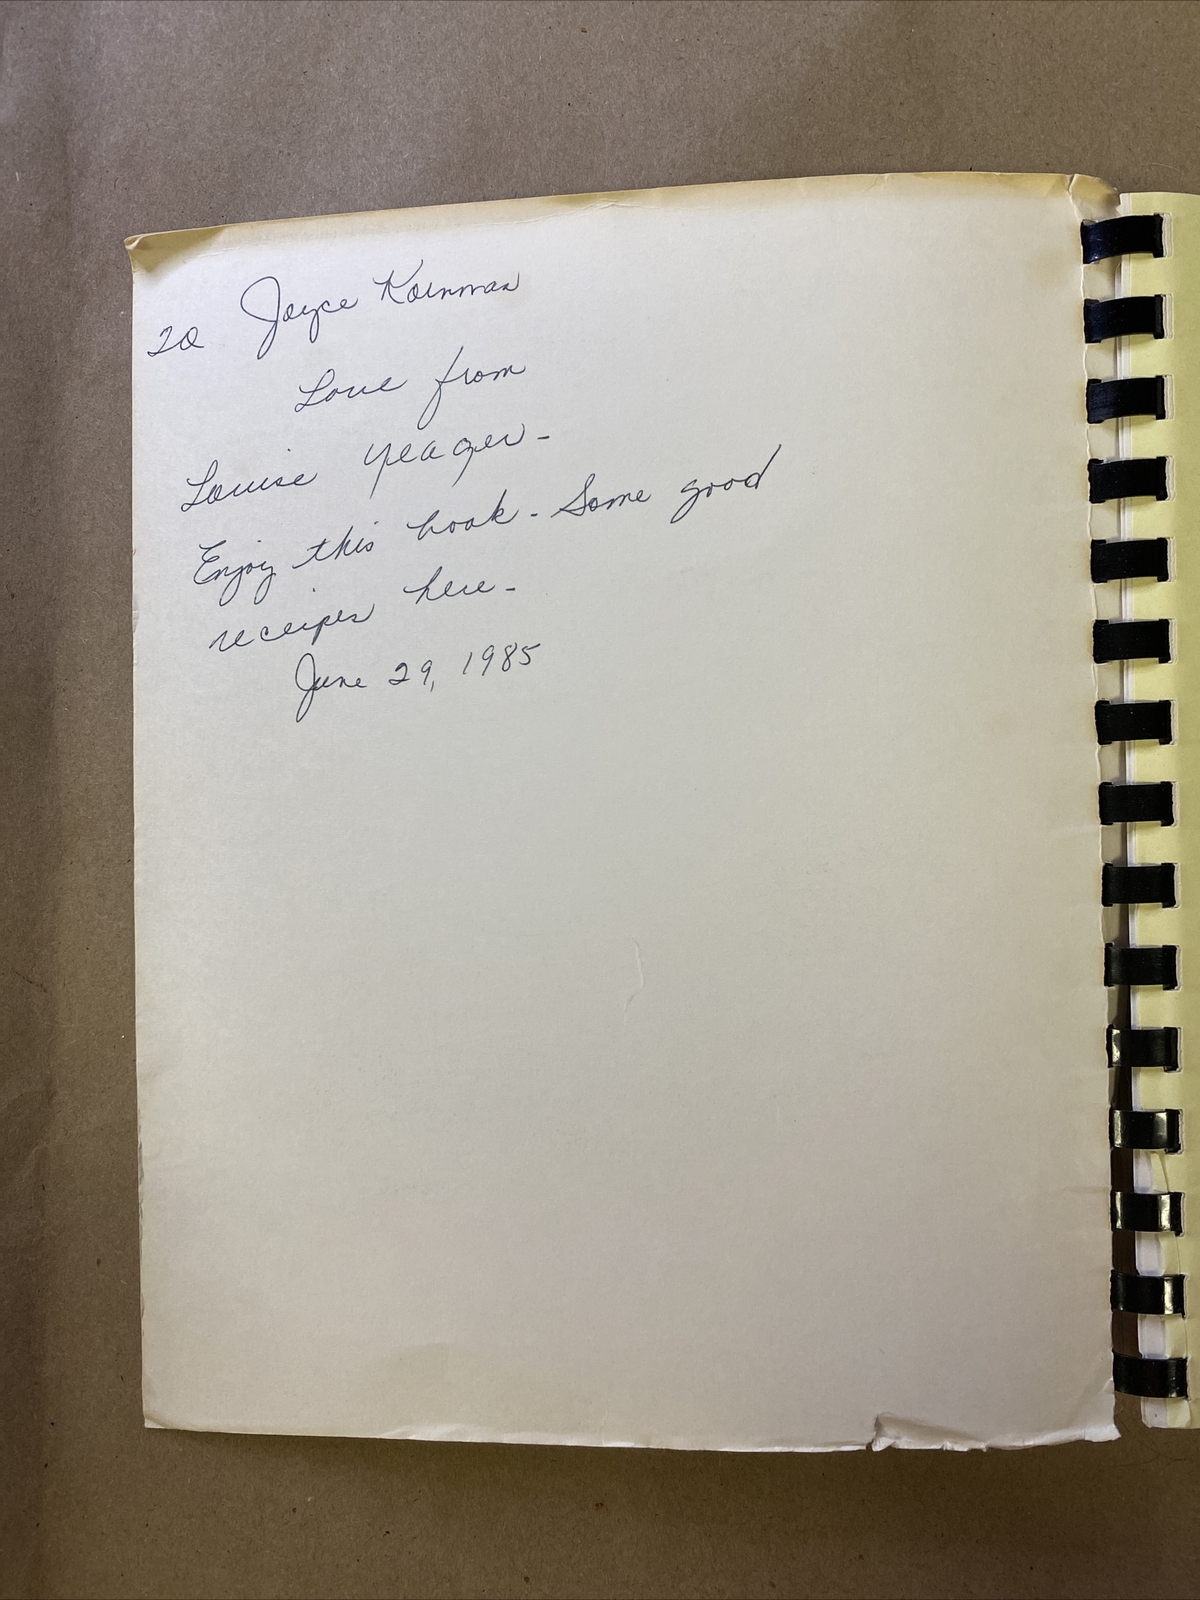 To Joyce Kornman
Love from
Louise Yeager -
Enjoy this book - Some good
receipes here -
June 29, 1985